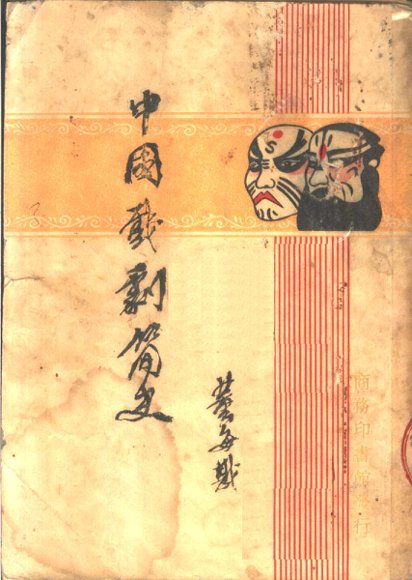 中國戲劇簡史
董每戡
商務印書館發行